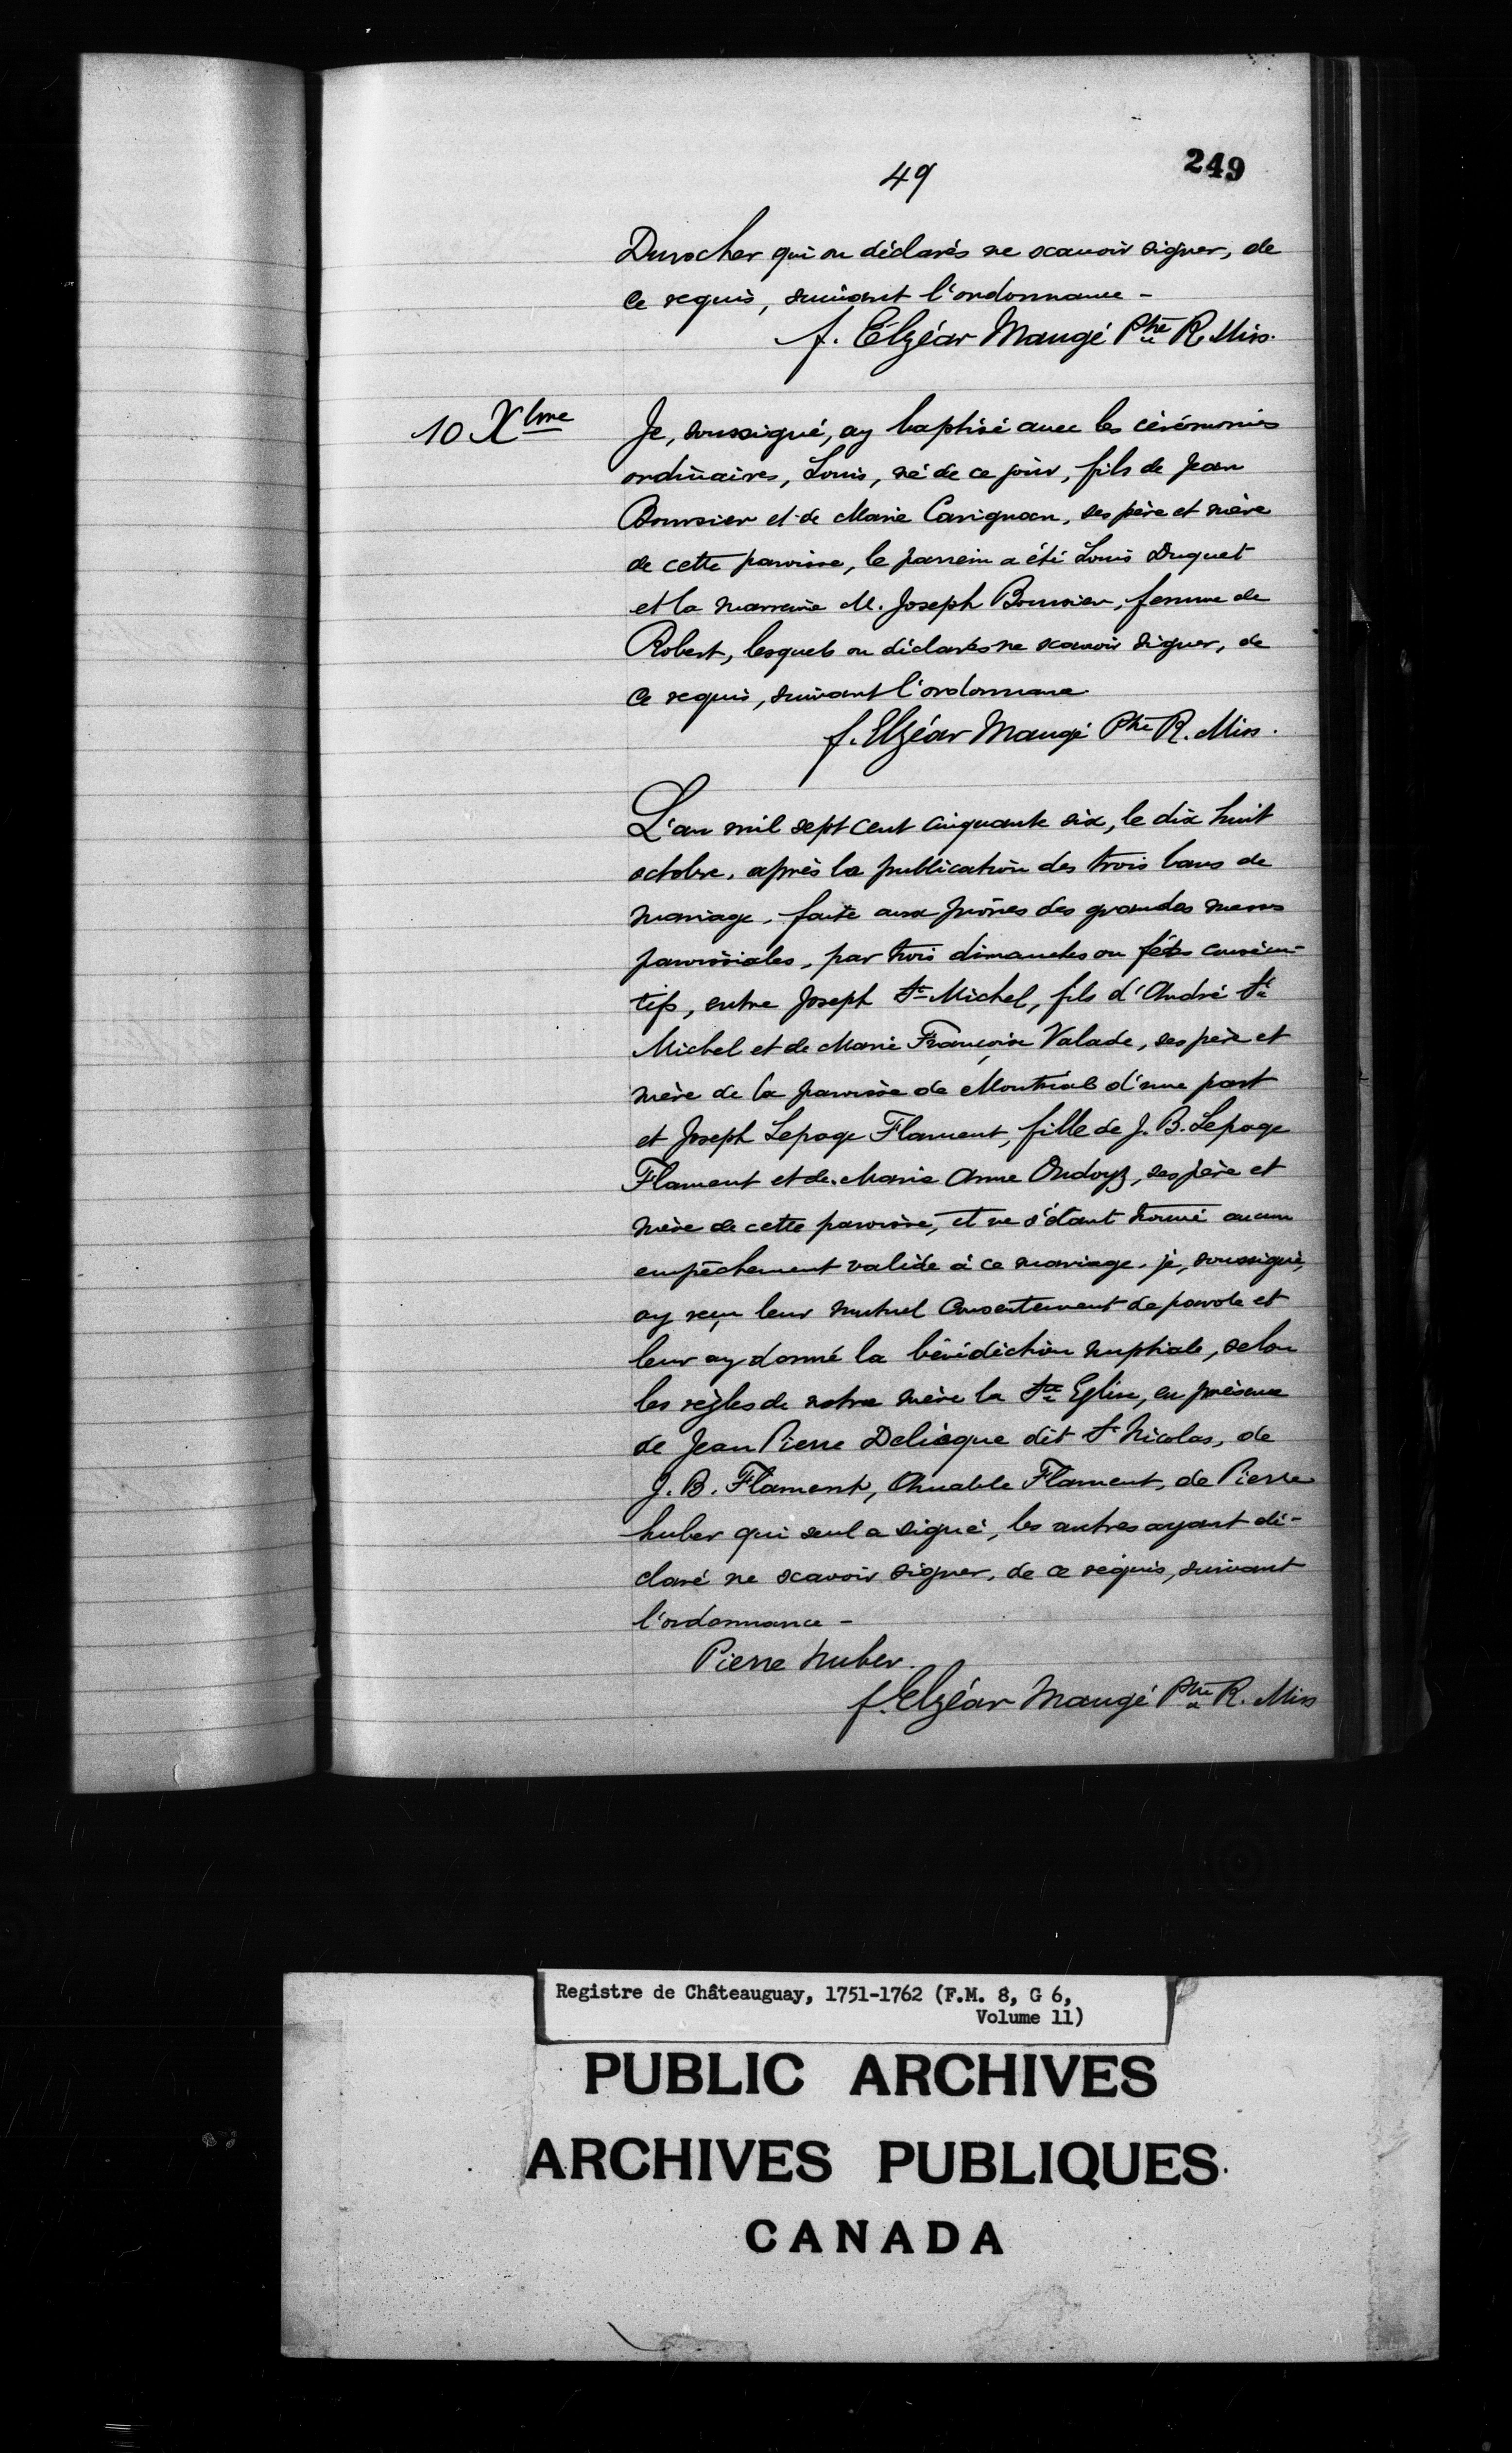 249
49
Durocher qui on déclarés ne scauoir signer, de
ce requis, suivant l'ordonnance -
f. Elzéar Maugé Ptre R. Miss.
10 Xbre
Je, soussigné, ay baptisé auec les cérémonies
ordinaires, Louis, né de ce jour, fils de Jean
Boursier et de Marie Carignan, ses père et mère
de cette paroisse, le parrein a été Louis Duquet
et la marreine M. Joseph Boursier, femme de
Robert, lesquels on déclarés ne scavoir signer, de
ce requis, suivant l'ordonnance.
f. Elzéar Maugé Ptre R. Miss.
L'an mil sept cent cinquante six, le dix huit
octobre, après la publication des trois bans de
mariage, faite aux prônes des grandes messes
paroissiales, par trois dimanches ou fêtes consécu-
tifs, entre Joseph St Michel, fils d'André St
Michel et de Marie Françoise Valade, ses père et
mère de la paroisse de Montréal d'une part
et Joseph Lepage Flament, fille de J. B. Lepage
Flament et de Marie Anne Ondoyz, ses père et
mère de cette paroisse, et ne s'étant trouvé aucun
empêchement valide à ce mariage, je, soussigné,
ay reçu leur mutuel consentement de parole et
leur ay donné la bénédiction nuptiale, selon
les règles de notre mère la Ste Eglise, en présence
de Jean Pierre Deliasque dit St Nicolas, de
J. B. Flament, Amable Flament, de Pierre
huber qui seul a signé, les autres ayant dé-
claré ne scavoir signer, de ce requis, suivant
l'ordonnance -
Pierre huber.
f. Elzéar Maugé Ptre R. Miss
Registre de Châteauguay, 1751-1762 (F.M. 8, G 6,
Volume 11)
PUBLIC ARCHIVES
ARCHIVES PUBLIQUES
CANADA